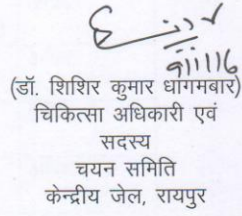 9/11/16
(डॉ. शिशिर कुमार धागमबार)
चिकित्सा अधिकारी एवं
सदस्य
चयन समिति
केन्द्रीय जेल, रायपुर